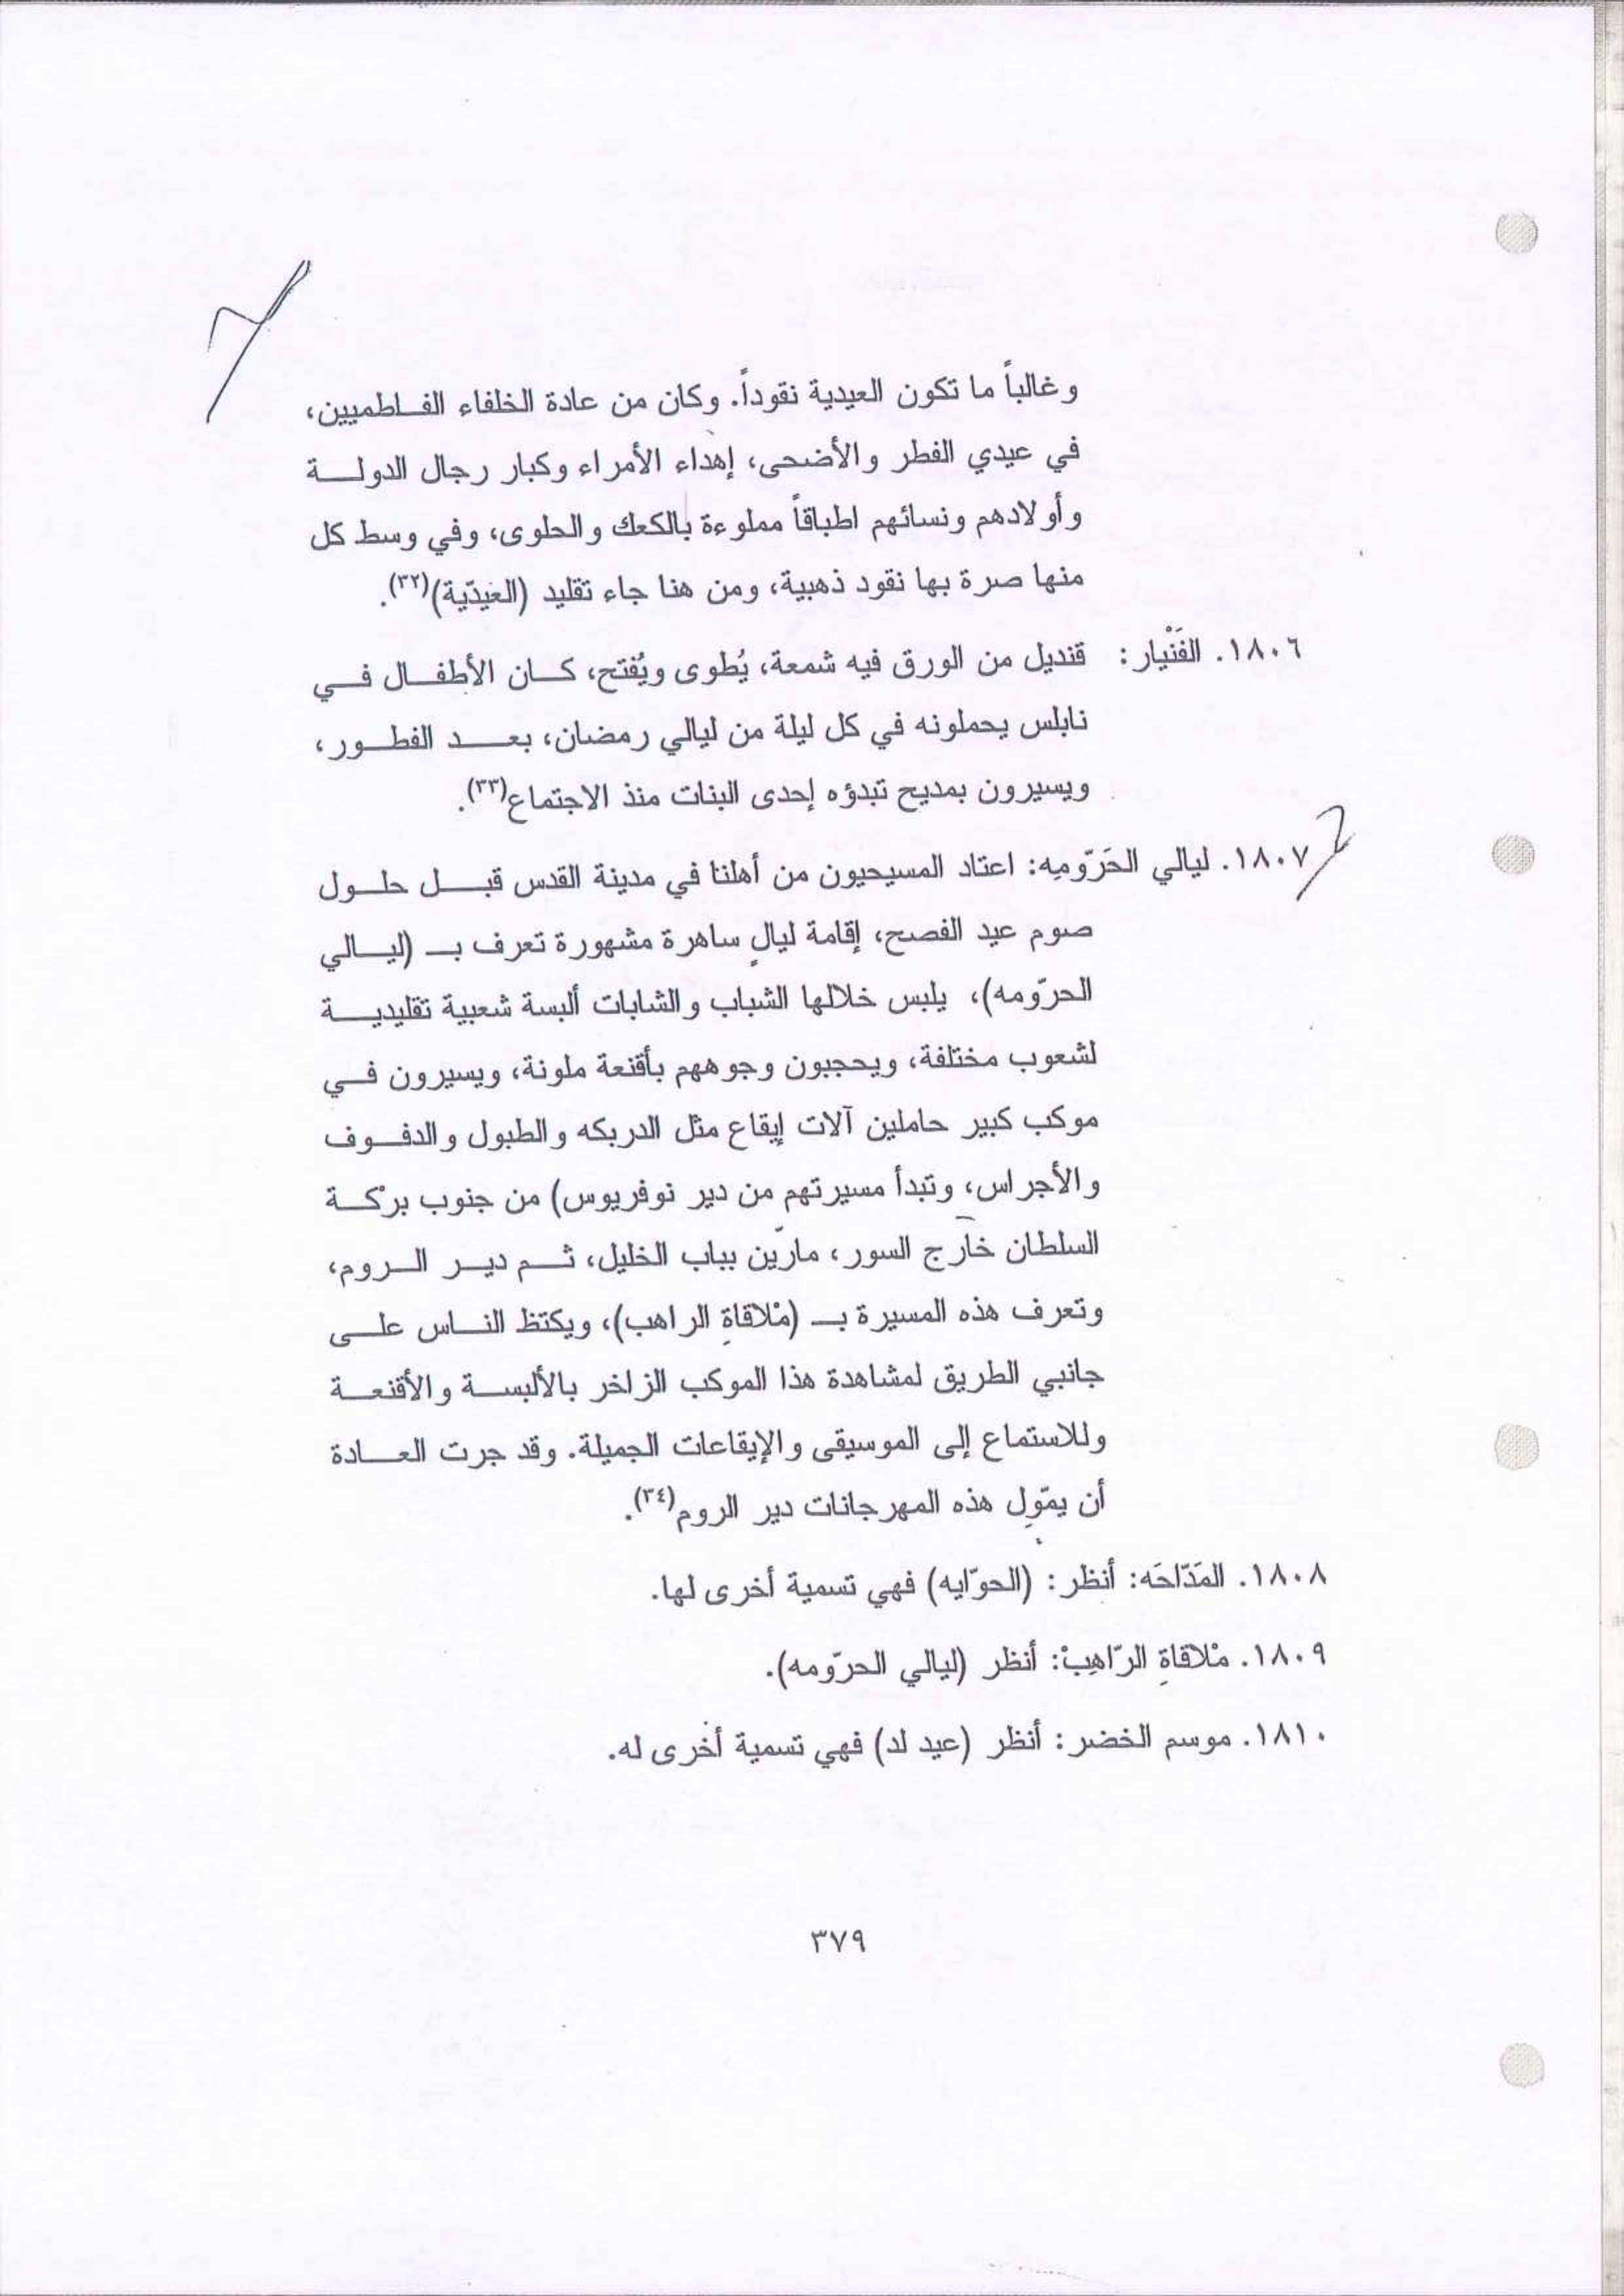 وغالباً ما تكون العيدية نقوداً. وكان من عادة الخلفاء الفاطميين،
في عيدي الفطر والأضحى، إهداء الأمراء وكبار رجال الدولة
وأولادهم ونسائهم اطباقاً مملوءة بالكعك والحلوى، وفي وسط كل
منها صرة بها نقود ذهبية، ومن هنا جاء تقليد (العيدّية)(٣٢).
١٨٠٦. الفَنْيار: قنديل من الورق فيه شمعة، يُطوى ويُفتح، كان الأطفال في
نابلس يحملونه في كل ليلة من ليالي رمضان، بعد الفطور،
ويسيرون بمديح تبدؤه إحدى البنات منذ الاجتماع(٣٣).
١٨٠٧. ليالي الحَرّومِه: اعتاد المسيحيون من أهلنا في مدينة القدس قبل حلول
صوم عيد الفصح، إقامة ليالٍ ساهرة مشهورة تعرف بـ (ليالي
الحرّومه)، يلبس خلالها الشباب والشابات ألبسة شعبية تقليدية
لشعوب مختلفة، ويحجبون وجوههم بأقنعة ملونة، ويسيرون في
موكب كبير حاملين آلات إيقاع مثل الدربكه والطبول والدفوف
والأجراس، وتبدأ مسيرتهم من دير نوفريوس) من جنوب برْكة
السلطان خارج السور، مارّين بباب الخليل، ثم دير الروم،
وتعرف هذه المسيرة بـ (مْلاقاةِ الراهب)، ويكتظ الناس على
جانبي الطريق لمشاهدة هذا الموكب الزاخر بالألبسة والأقنعة
وللاستماع إلى الموسيقى والإيقاعات الجميلة. وقد جرت العادة
أن يمّوِل هذه المهرجانات دير الروم(٣٤).
١٨٠٨. المَدّاحَه: أنظر: (الحوّايه) فهي تسمية أخرى لها.
١٨٠٩. مْلاقاةِ الرّاهِبْ: أنظر (ليالي الحرّومه).
١٨١٠. موسم الخضر: أنظر (عيد لد) فهي تسمية أخرى له.
٣٧٩